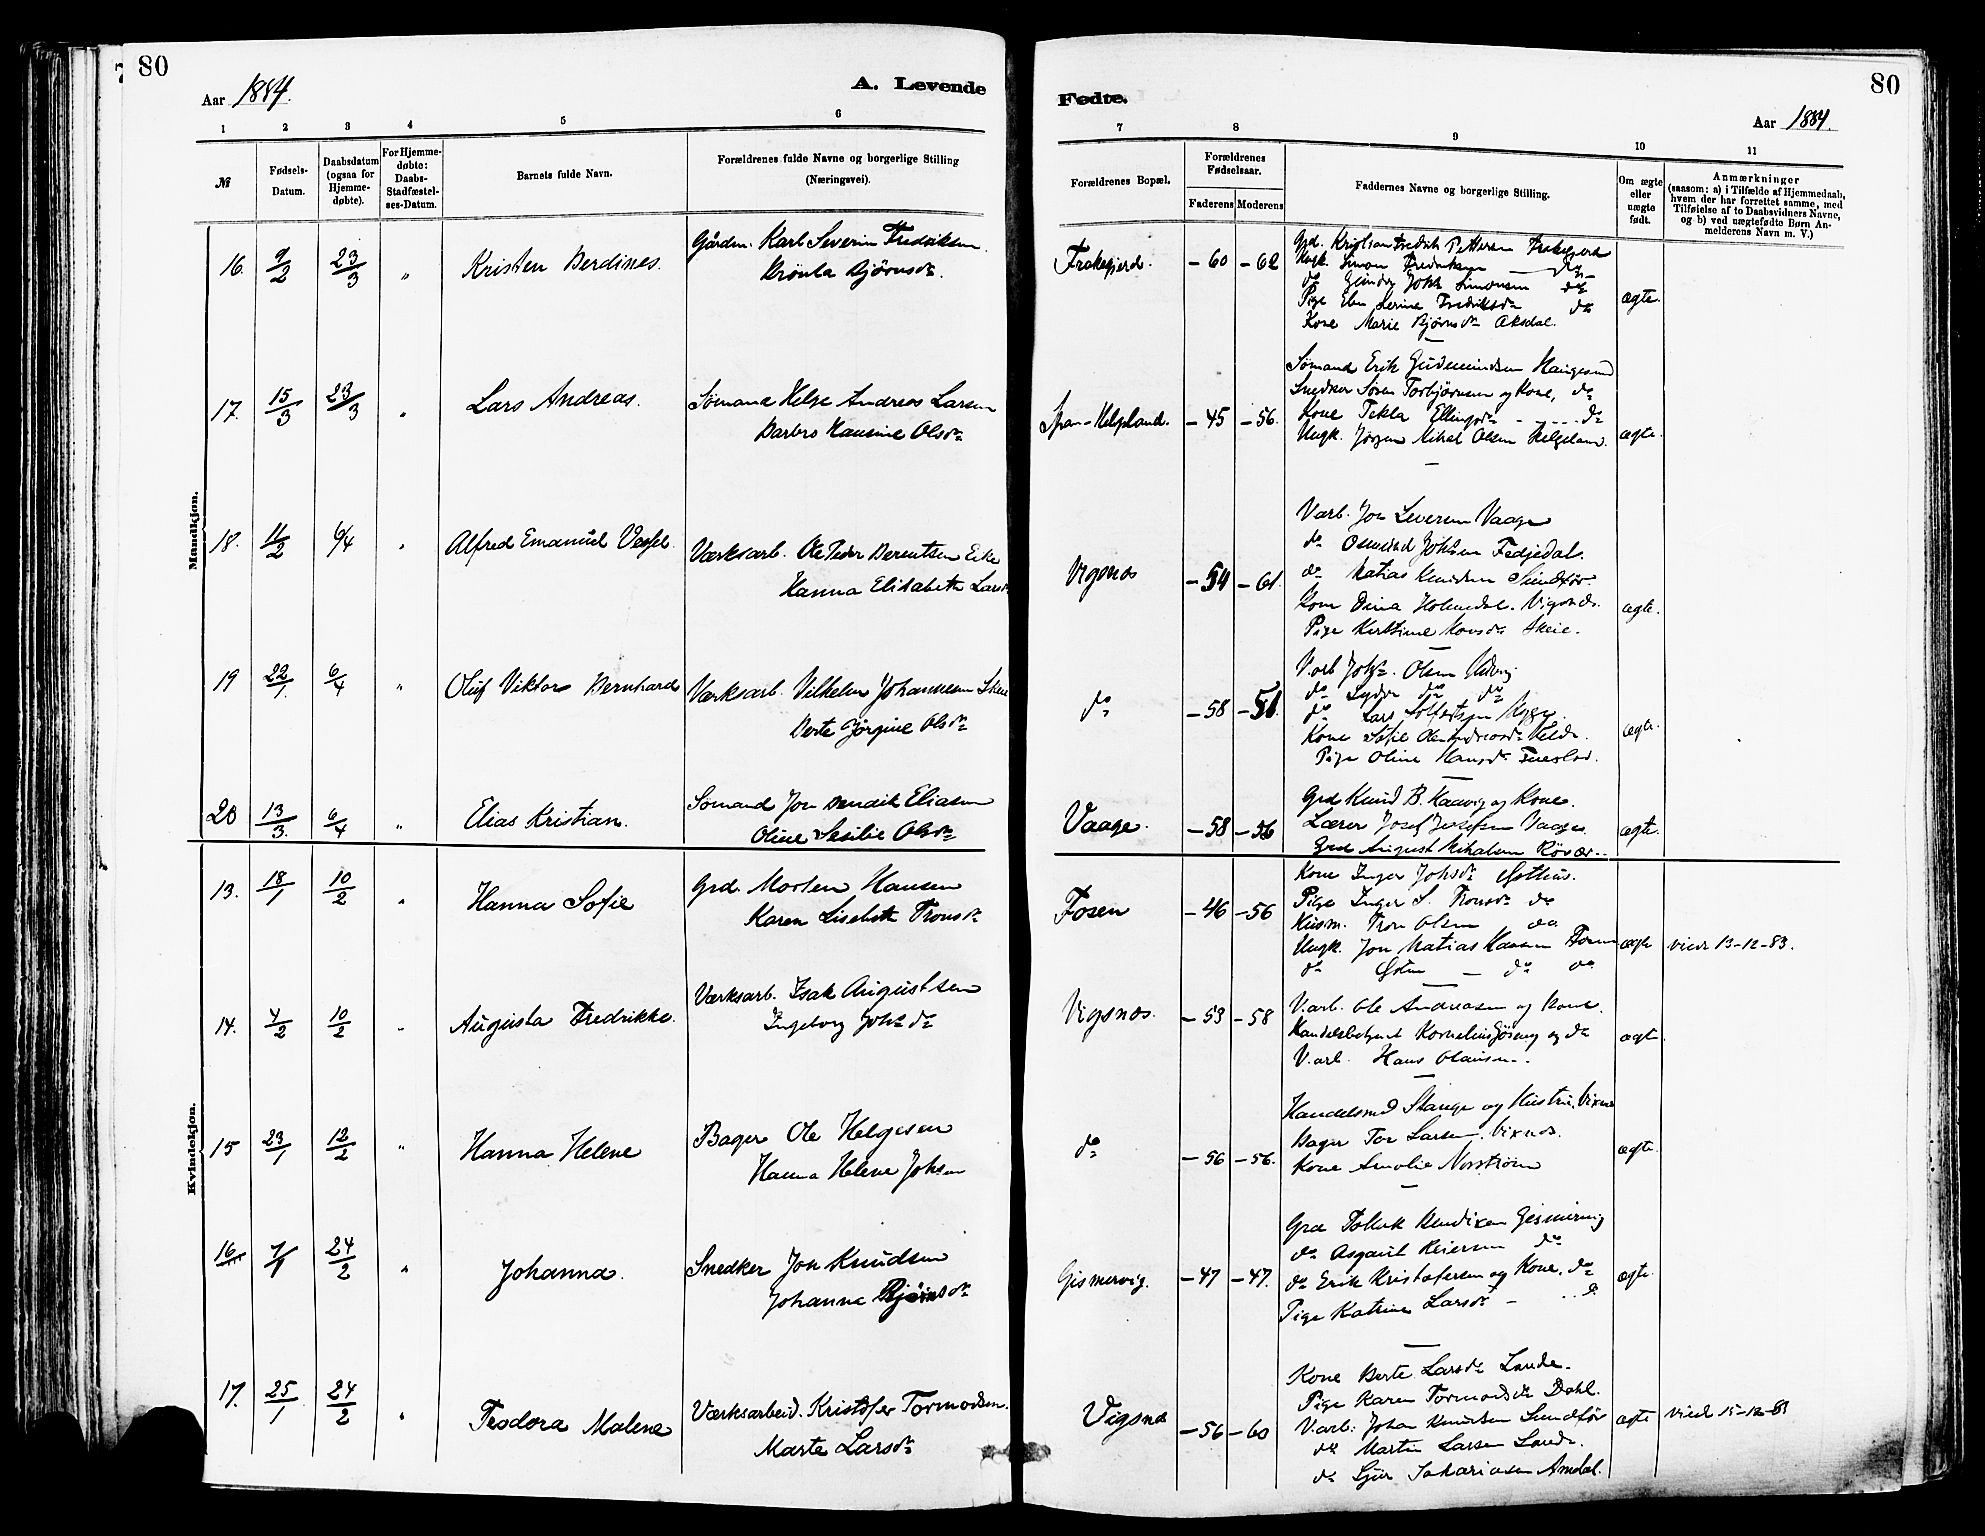 80
Aar 1884.
A. Levende
1 2 3 4 5 6
№
Fødsels-Datum.
Daabsdatum (ogsaa for Hjemme-døbte).
For Hjemme-døbte: Daabs-Stadfæstel-ses-Datum.
Barnets fulde Navn.
Forældrenes fulde Navne og borgerlige Stilling (Næringsvei).
Mandkjøn.
16. 9/2 23/3 " Kristen Berdines. Gården. Karl Severin Fredriksen
Brønla Bjørnsdr.
17. 15/3 23/3 " Lars Andreas. Sømand Helge Andreas Larsen
Barbro Hansine Olsdr
18. 11/2 6/4 " Alfred Emanuel Vessel. Værksarb. Ole Peder Berentsen Eike
Hanna Elisabeth Larsdr
19 22/1. 6/4 " Oluf Viktor Bernhard Værksarb. Vilhelm Johannesen Skeie
Berte Jørgine Olsdr
20 13/3. 6/4 " Elias Kristian. Sømand Jon Bendik Eliasen
Oline Sesilie Olsdr
Kvindekjøn.
13. 18/1 10/2 " Hanna Sofie Grd. Morten Hansen
Karen Lisebeth Tronsdr
14. 4/2 10/2 " Augusta Fredrikke. Værksarb. Isak Augustsen
Ingeborg Johsdr
15 23/1 12/2 " Hanna Helene Bager Ole Helgesen
Hanna Helene Johsen
16 7/1 24/2 " Johanna. Snedker Jon Knudsen
Johanna Bjørnsdr
17. 25/1 24/2 " Teodora Malene Værksarbeid. Kristofer Tormodsen.
Marte Larsdr
80
Fødte.
Aar 1884.
7 8 9 10 11
Forældrenes Bopæl.
Forældrenes Fødselsaar.
Faderens Moderens
Faddernes Navne og borgerlige Stilling.
Om ægte eller uægte født.
Anmærkninger
(saasom: a) i Tilfælde af Hjemmedaab,
hvem der har forrettet samme, med
Tilføielse af to Daabsvidners Navne,
og b) ved uægtefødte Børn An-
melderens Navn m. V.)
Frakegjerd. – 60 – 62 ægte.
Grd. Kristian Fredrik Pettersen Frakegjerd
Ungk. Simon Fredriksen — do
do Johs Simonsen do
Pige Serine Fredriksdr do
Kone Marie Bjørnsdr Aksdal.
–Helgeland. – 45 – 56. ægte.
Sømand Erik Gudmundsen Haugesund
Snedker Søren Torbjørnsen og Kone, do
Kone Tekla Ellingsdr - - - . . . do
Ungk. Jørgen Mikal Olsen Helgeland.
Vigsnæs – 54 – 61. ægte.
Varb. Jon Severin Vaage
do Osmund Johsen Fedjedal.
do Matias Knudsen Sundfør.
Kone Dina Holmedal. Vigsnæs.
Pige Kirstine Monsdr Skeie.
do – 58 – 51. ægte.
Varb Johs. Olsen Udvig
do do do
do Lars
Kone Sofie
Pige Oline Hansdr
Vaage. – 58 – 56 ægte.
Grd Knud B. Haavig og Kone.
Lærer Josef Josefsen Vaage.
Grd August Mikalsen Røvær.
Fosen – 46 – 56 ægte viede 13-12-83.
Kone Inger Johsdr Østhus.
Pige Inger S. Tronsdr do
Husm. Tron Olsen do.
Ungk. Jon Matias Hansen Fosen
do Østen — do do
Vigsnæs. – 53 – 58 ægte
Varb. Ole Andreasen og Kone.
Handelsbetjent Kornelius og do
V.arb. Hans Olausen.
do – 56 – 56. ægte.
Handelsmd Stange og Hustru, Vixnæs
Bager Tor Larsen. Vixnæs.
Kone Amalie Norstrøm
Gismervig. – 47 – 47. ægte.
Grd Bendixen Gismervig
do Asgaut Reiersen do
do Erik Kristofersen og Kone, do
Pige Katrine Larsdr – . . do
Vigsnæs – 56 – 60 ægte viede 15-12-83
Kone Berte Larsdr Lande.
Pige Karen Tormodsdr Dahl.
Varb. Johan Knudsen Sundfør
do Martin Larsen Lande.
do Sjur Sakariasen Amdal.